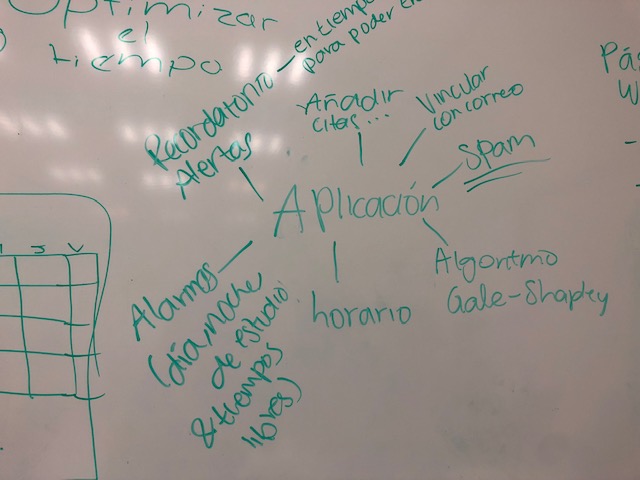 Optimizar
el
tiempo
en tiempo
para poder
Recordatorio
Alertas
Añadir
citas...
Vincular
con correo
Spam
Aplicación
Algoritmo
Gale-Shapley
horario
Alarmas
(día, noche
de estudio
& tiempos
libres)
J V
Pág
W
-